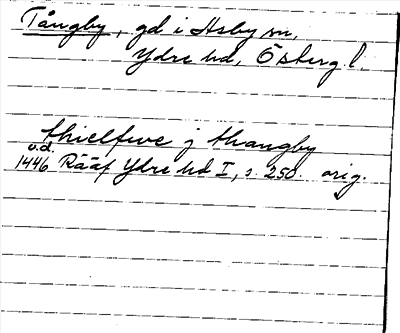 Tångby, gd i Asby sn,
Ydre hd, Östergl.
thielffwe j thangby
u.d.
1446 Rääf Ydre hd I, s. 250. orig.